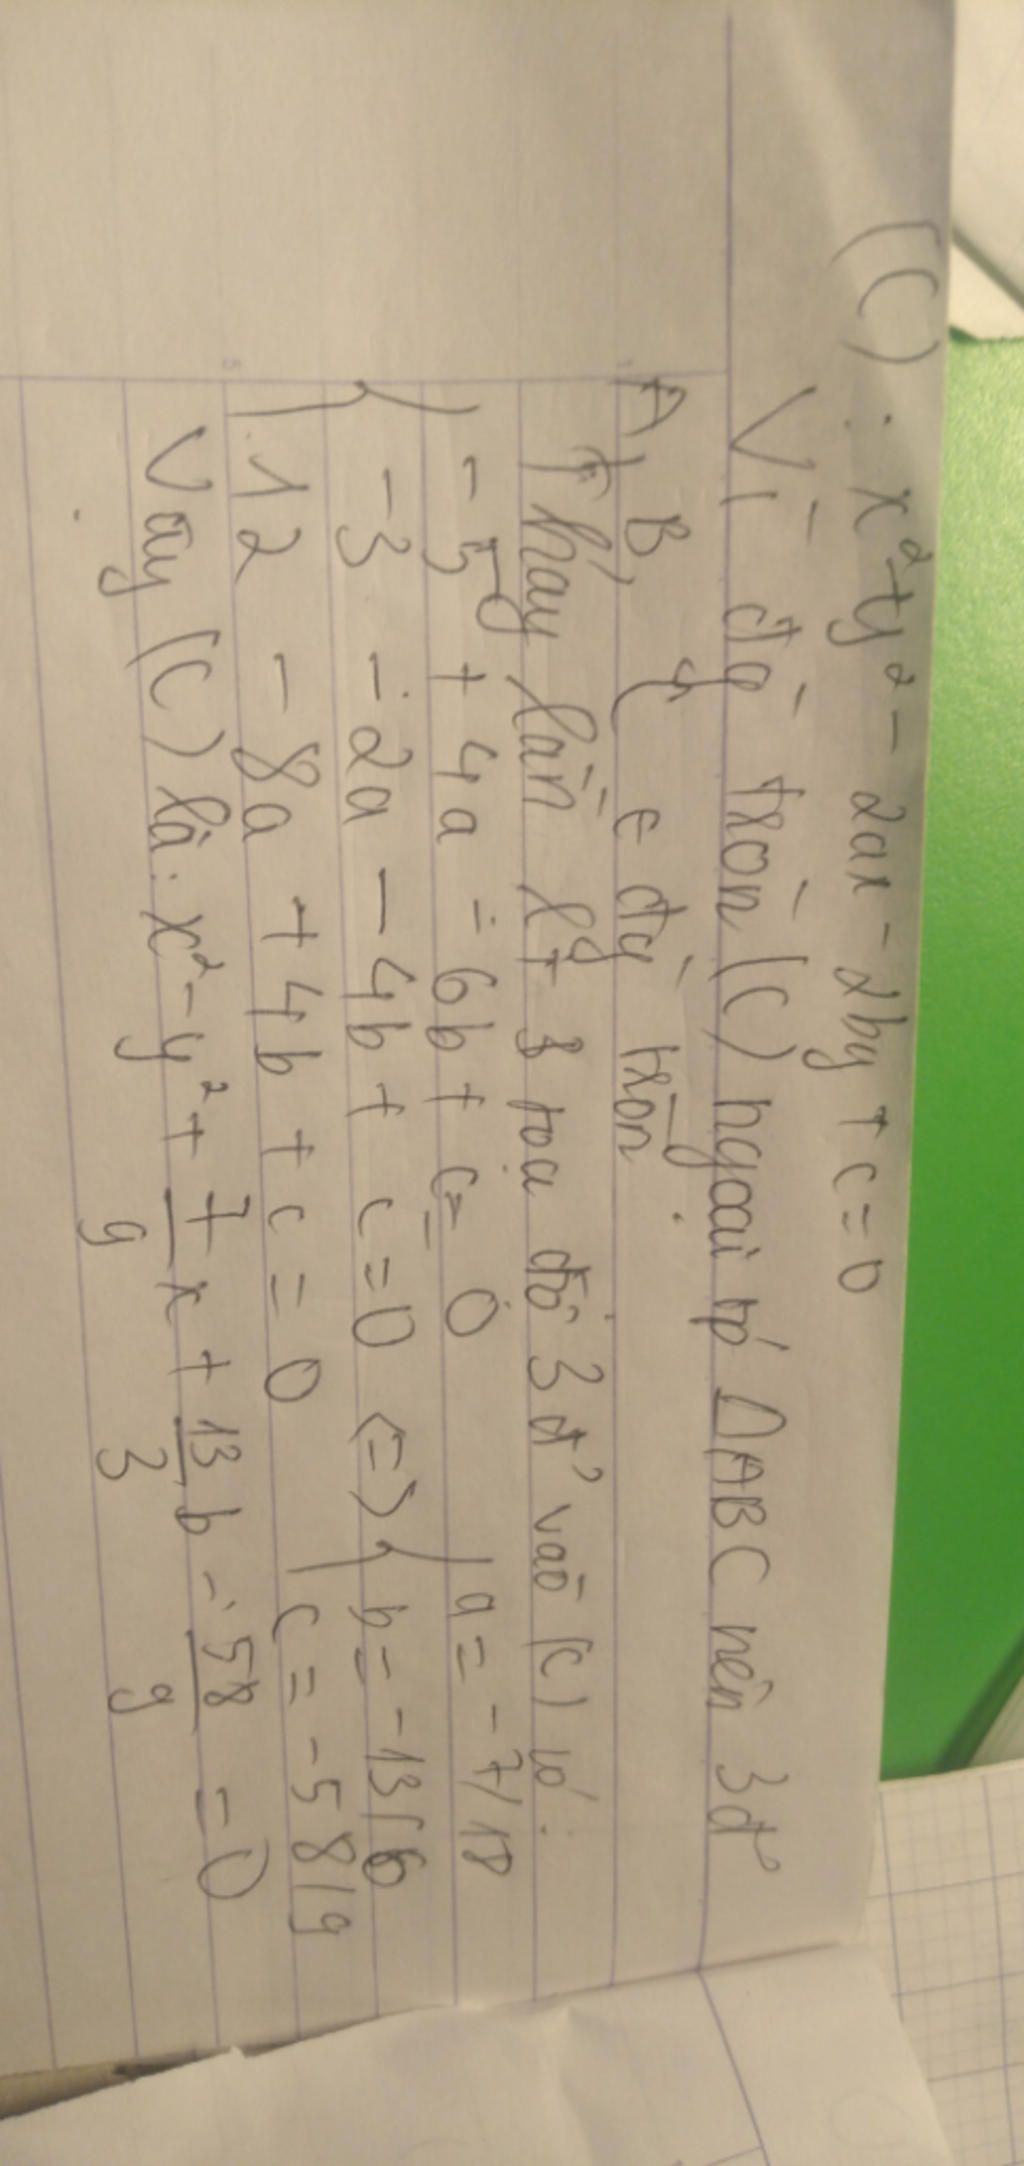 (C) : x² + y² - 2ax - 2by + c = 0
Vì đg tròn (C) ngoại tp ΔABC nên 3đ
A, B, C ∈ đg tròn.
Thay lần lượt 3 tọa độ 3 đ' vào (C) có:
- 5 + 4a - 6b + c = 0 a = - 7/18
- 3 - 2a - 4b + c = 0 <=> b = - 13/6
12 - 8a + 4b + c = 0 c = - 58/9
Vậy (C) là: x² - y² + 7/9 x + 13/3 b - 58/9 = 0